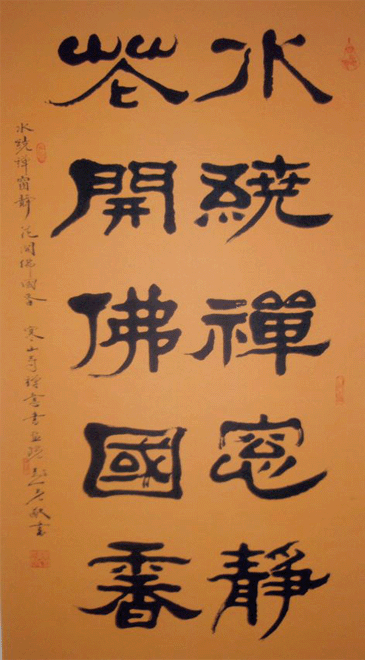 水繞禪窓靜
花開佛國香
水繞禪窗靜 花開佛國香 寒山寺 書畫院 敬書